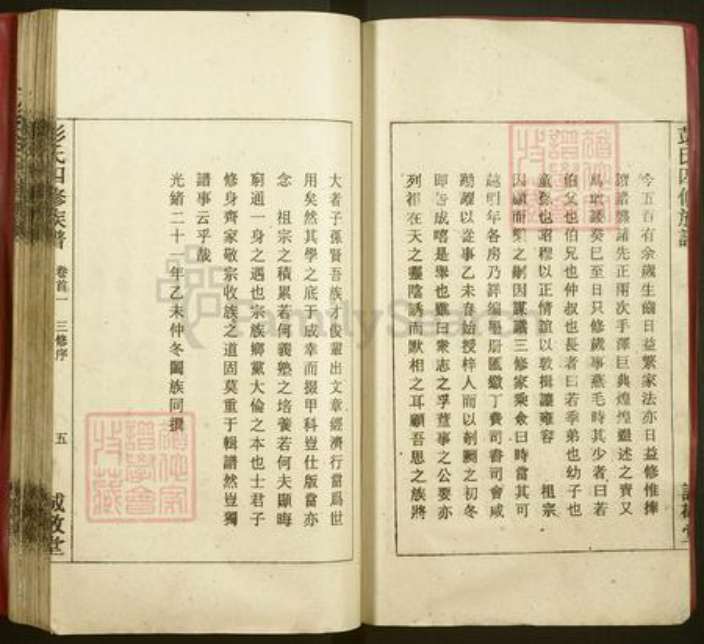 今五百有余歲生齒日益繁家法亦日益修惟捧
讀譜 諸先正兩次手澤巨典煌煌繼述之責又
焉敢諉癸巳至日只修歲事燕毛時其少者曰若
伯父也伯兄也仲叔也長者曰若季弟也幼子也
童孫也昭穆以正情誼以敦揖讓雍容 祖宗
因顧而樂之嗣因謀議三修家乘僉曰時當其可
越明年各房乃詳編 繳丁費司書司會咸
踴躍以從事乙未春始授梓人而以剞劂之初冬
即告成嘻是舉也雖曰衆志之孚董事之公要亦
列祖在天之靈陰誘而默相之耳顧吾思之族將
大者子孫賢吾族之俊輩出文章經濟行當爲世
用矣然其學之底于成幸而掇甲科豈仕版當亦
念 祖宗之積累若何義塾之培養若何夫顯晦
窮通一身之遇也宗族鄉黨大倫之本也士君子
修身齊家敬宗收族之道固莫重于輯譜然豈獨
譜事云乎哉
光緒二十一年乙未仲冬闔族同撰
彭氏四修族譜 卷首一 三修序 五
FamilySearch